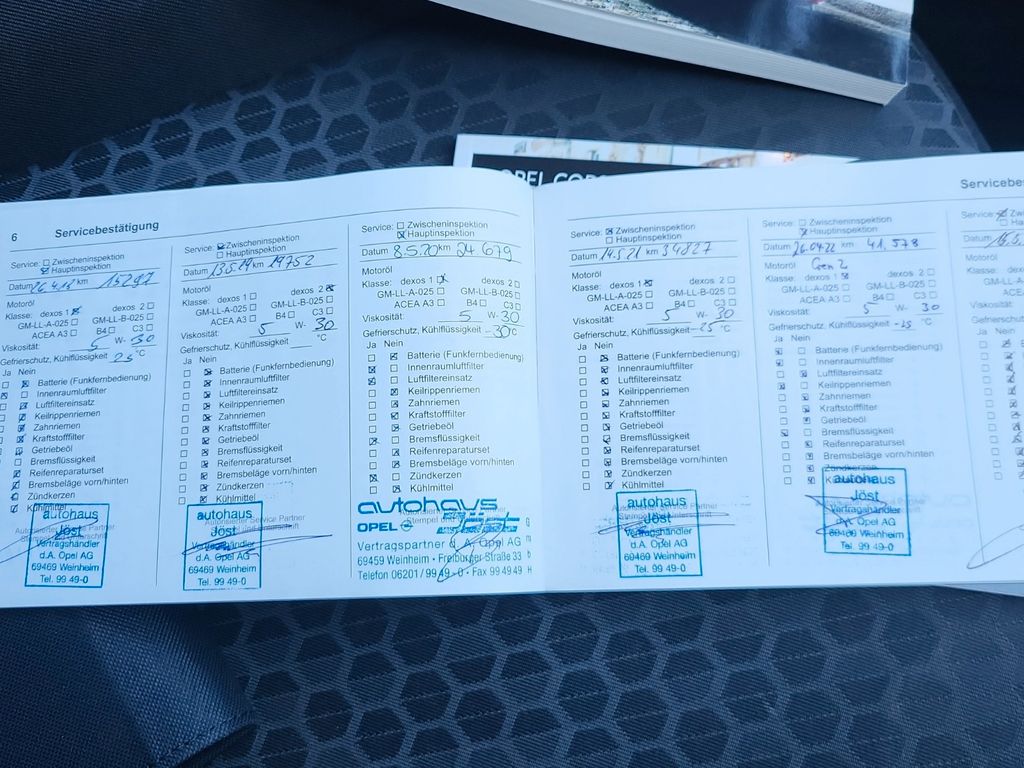 OPEL COR
6 Servicebestätigung
Service: ☐ Zwischeninspektion
☒ Hauptinspektion
Datum 26.4.18 km 15291
Motoröl
Klasse: dexos 1 ☒ dexos 2 ☐
GM-LL-A-025 ☐ GM-LL-B-025 ☐
ACEA A3 ☐ B4 ☐ C3 ☐
Viskosität: 5 W- 30
Gefrierschutz, Kühlflüssigkeit 25 °C
Ja Nein
Batterie (Funkfernbedienung)
Innenraumluftfilter
Luftfiltereinsatz
Keilrippenriemen
Zahnriemen
Kraftstofffilter
Getriebeöl
Bremsflüssigkeit
Reifenreparaturset
Bremsbeläge vorn/hinten
Zündkerzen
Kühlmittel
autohaus
Jöst
Vertragshändler
d.A. Opel AG
69469 Weinheim
Tel. 99 49-0
Service: ☒ Zwischeninspektion
☐ Hauptinspektion
Datum 13.5.19 km 19752
Motoröl
Klasse: dexos 1 ☐ dexos 2 ☒
GM-LL-A-025 ☐ GM-LL-B-025 ☐
ACEA A3 ☐ B4 ☐ C3 ☐
Viskosität: 5 W- 30
Gefrierschutz, Kühlflüssigkeit °C
Ja Nein
Batterie (Funkfernbedienung)
Innenraumluftfilter
Luftfiltereinsatz
Keilrippenriemen
Zahnriemen
Kraftstofffilter
Getriebeöl
Bremsflüssigkeit
Reifenreparaturset
Bremsbeläge vorn/hinten
Zündkerzen
Kühlmittel
Autorisierter Service Partner
autohaus
Jöst
Vertragshändler
d.A. Opel AG
69469 Weinheim
Tel. 99 49-0
Service: ☐ Zwischeninspektion
☒ Hauptinspektion
Datum 8.5.20 km 24.679
Motoröl
Klasse: dexos 1 ☒ dexos 2 ☐
GM-LL-A-025 ☐ GM-LL-B-025 ☐
ACEA A3 ☐ B4 ☐ C3 ☐
Viskosität: 5 W- 30
Gefrierschutz, Kühlflüssigkeit -30 °C
Ja Nein
Batterie (Funkfernbedienung)
Innenraumluftfilter
Luftfiltereinsatz
Keilrippenriemen
Zahnriemen
Kraftstofffilter
Getriebeöl
Bremsflüssigkeit
Reifenreparaturset
Bremsbeläge vorn/hinten
Zündkerzen
Kühlmittel
autohaus
OPEL
Vertragspartner d. A. Opel AG
69459 Weinheim • Freiburger Straße 33
Telefon 06201/99 49-0 • Fax 99 49 49
Service: ☒ Zwischeninspektion
☐ Hauptinspektion
Datum 19.5.21 km 34827
Motoröl
Klasse: dexos 1 ☒ dexos 2 ☐
GM-LL-A-025 ☐ GM-LL-B-025 ☐
ACEA A3 ☐ B4 ☐ C3 ☐
Viskosität: 5 W- 30
Gefrierschutz, Kühlflüssigkeit -25 °C
Ja Nein
Batterie (Funkfernbedienung)
Innenraumluftfilter
Luftfiltereinsatz
Keilrippenriemen
Zahnriemen
Kraftstofffilter
Getriebeöl
Bremsflüssigkeit
Reifenreparaturset
Bremsbeläge vorn/hinten
Zündkerzen
Kühlmittel
autohaus
Jöst
Vertragshändler
d.A. Opel AG
69469 Weinheim
Tel. 99 49-0
Service: ☐ Zwischeninspektion
☒ Hauptinspektion
Datum 26.04.22 km 41,578
Motoröl Gen 2
Klasse: dexos 1 ☒ dexos 2 ☐
GM-LL-A-025 ☐ GM-LL-B-025 ☐
ACEA A3 ☐ B4 ☐ C3 ☐
Viskosität: 5 W- 30
Gefrierschutz, Kühlflüssigkeit -25 °C
Ja Nein
Batterie (Funkfernbedienung)
Innenraumluftfilter
Luftfiltereinsatz
Keilrippenriemen
Zahnriemen
Kraftstofffilter
Getriebeöl
Bremsflüssigkeit
Reifenreparaturset
Bremsbeläge vorn/hinten
Zündkerzen
autohaus
Jöst
Vertragshändler
d.A. Opel AG
69469 Weinheim
Tel. 99 49-0
Servicebes
Service: ☒ Zw
☐ Ha
Datum
Motoröl
Klasse:
GM-LL-A
ACE
Viskosität:
Gefriersch
Ja Nein